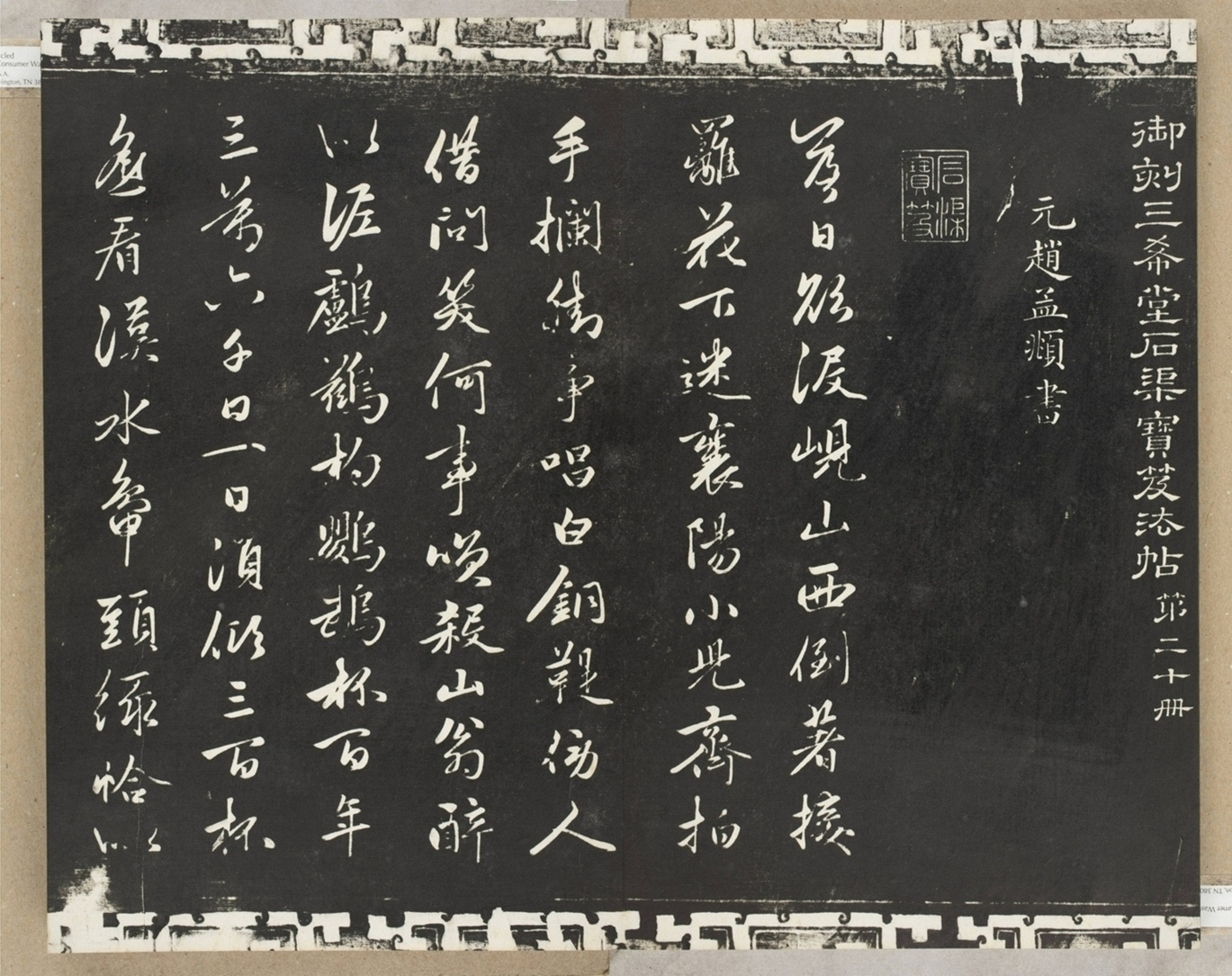 御刻三希堂石渠寶笈法帖 第二十冊
元趙孟頫書
石渠寶笈
落日欲沒峴山西倒著接
䍦花下迷襄陽小兒齊拍
手攔街爭唱白銅鞮傍人
借問笑何事咲殺山翁醉
似泥鸕鶿杓鸚鵡杯百年
三萬六千日一日須傾三百杯
遙看漢水鴨頭綠恰似